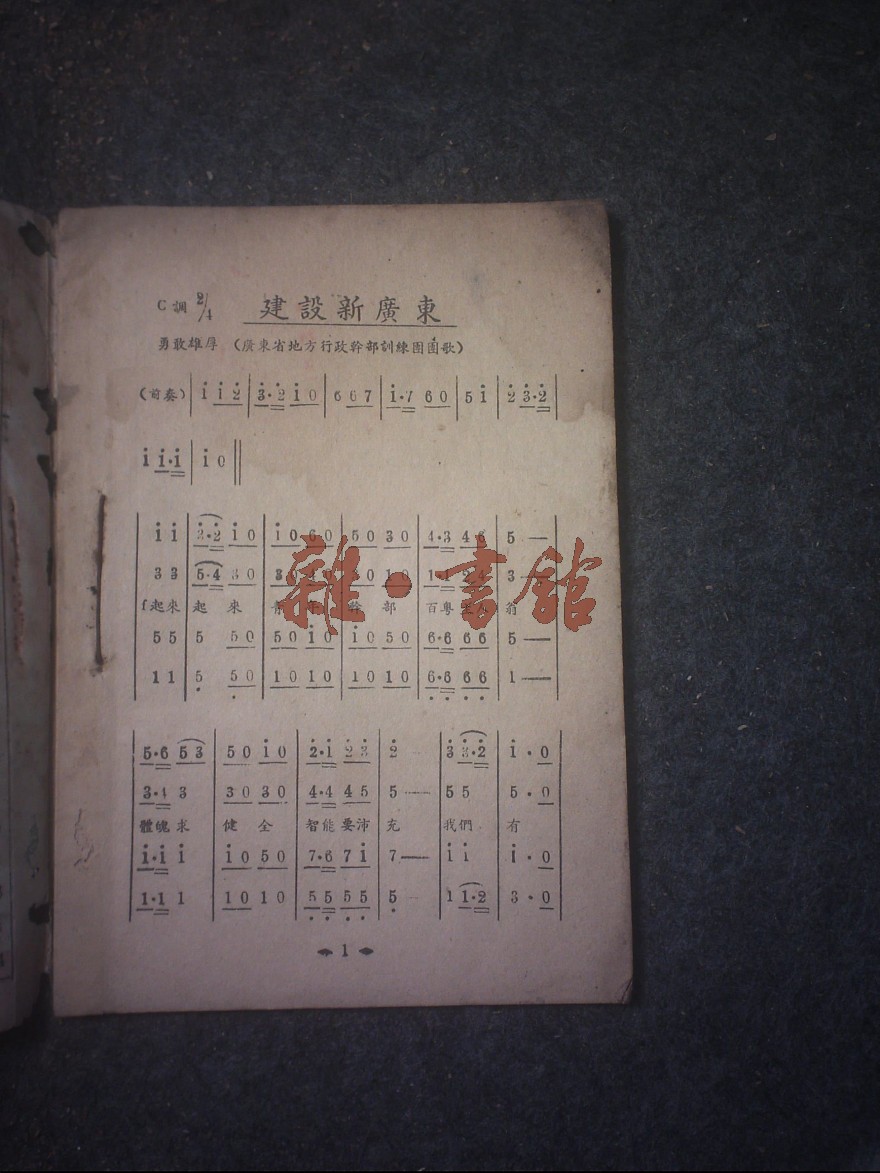 C調 2/4 建設新廣東
勇敢雄厚 (廣東省地方行政幹部訓練團團歌)
(前奏) | i̇ i̇ 2̇ | 3̇·2̇ i̇ 0 | 6 6 7 | i̇·7 6 0 | 5 i̇ | 2̇ 3̇·2̇ |
i̇ i̇·i̇ | i̇ 0 ‖
i̇ i̇ | 2̇·2̇ i̇ 0 | i̇ 0 6 0 | 5 0 3 0 | 4·3 4 6 | 5 — |
3 3 | 5·4 3 0 | 3 0 4 0 | 0 1 0 | 1·1 2 4 | 3 — |
起來 起 來 幹 部 百粵
5 5 | 5 5 0 | 5 0 i̇ 0 | i̇ 0 5 0 | 6·6 6 6 | 5 — |
1 1 | 5̣ 5̣ 0 | 1 0 1 0 | 1 0 1 0 | 6̣·6̣ 6̣ 6̣ | 1 — |
5·6 5 3 | 5 0 i̇ 0 | 2̇·i̇ 2̇ 3̇ | 2̇ — | 3̇ 3̇·2̇ | i̇·0 |
3·4 3 | 3 0 3 0 | 4·4 4 5 | 5 — | 5 5 | 5·0 |
體魄求 健 全 智能要沛 充 我們 有
i̇·i̇ i̇ | i̇ 0 5 0 | 7·6 7 i̇ | 7 — | i̇ i̇ | i̇·0 |
1·1 1 | 1 0 1 0 | 5̣·5̣ 5̣ 5̣ | 5̣ - | 1 1·2 | 3·0 |
1
雜·書館